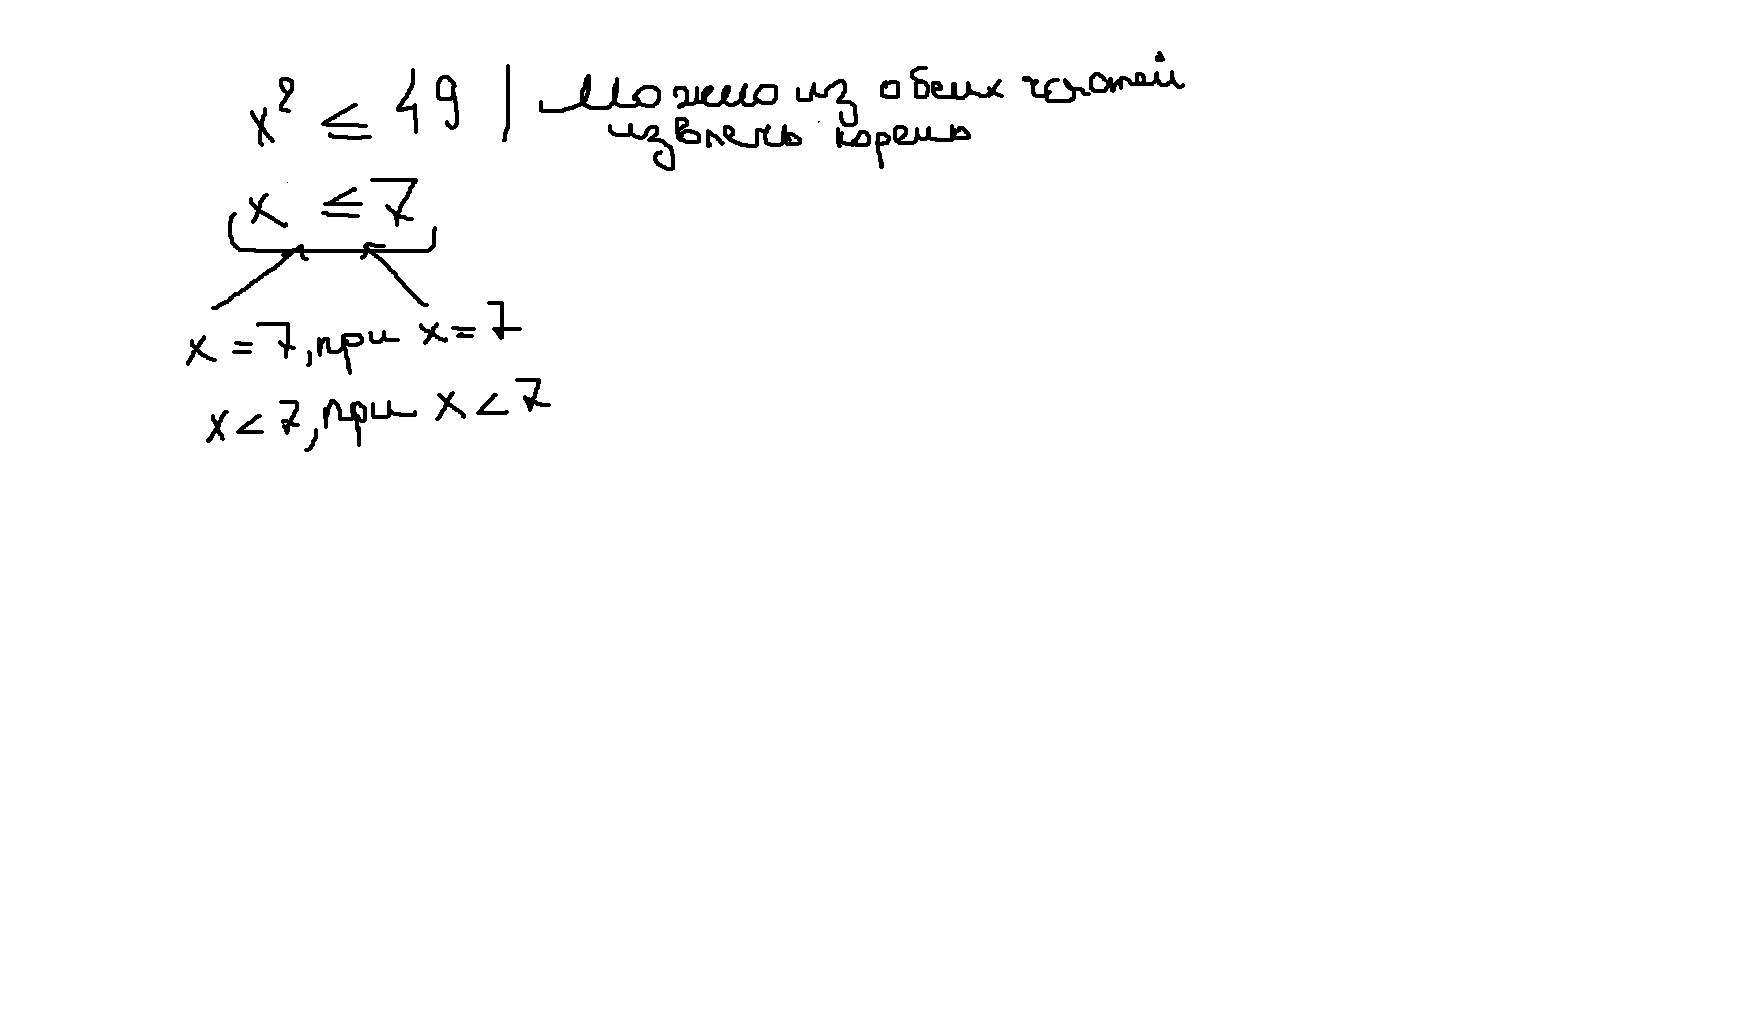 x² ≤ 49 | Можно из обеих частей
извлечь корень
x ≤ 7
x = 7, при x = 7
x < 7, при x < 7